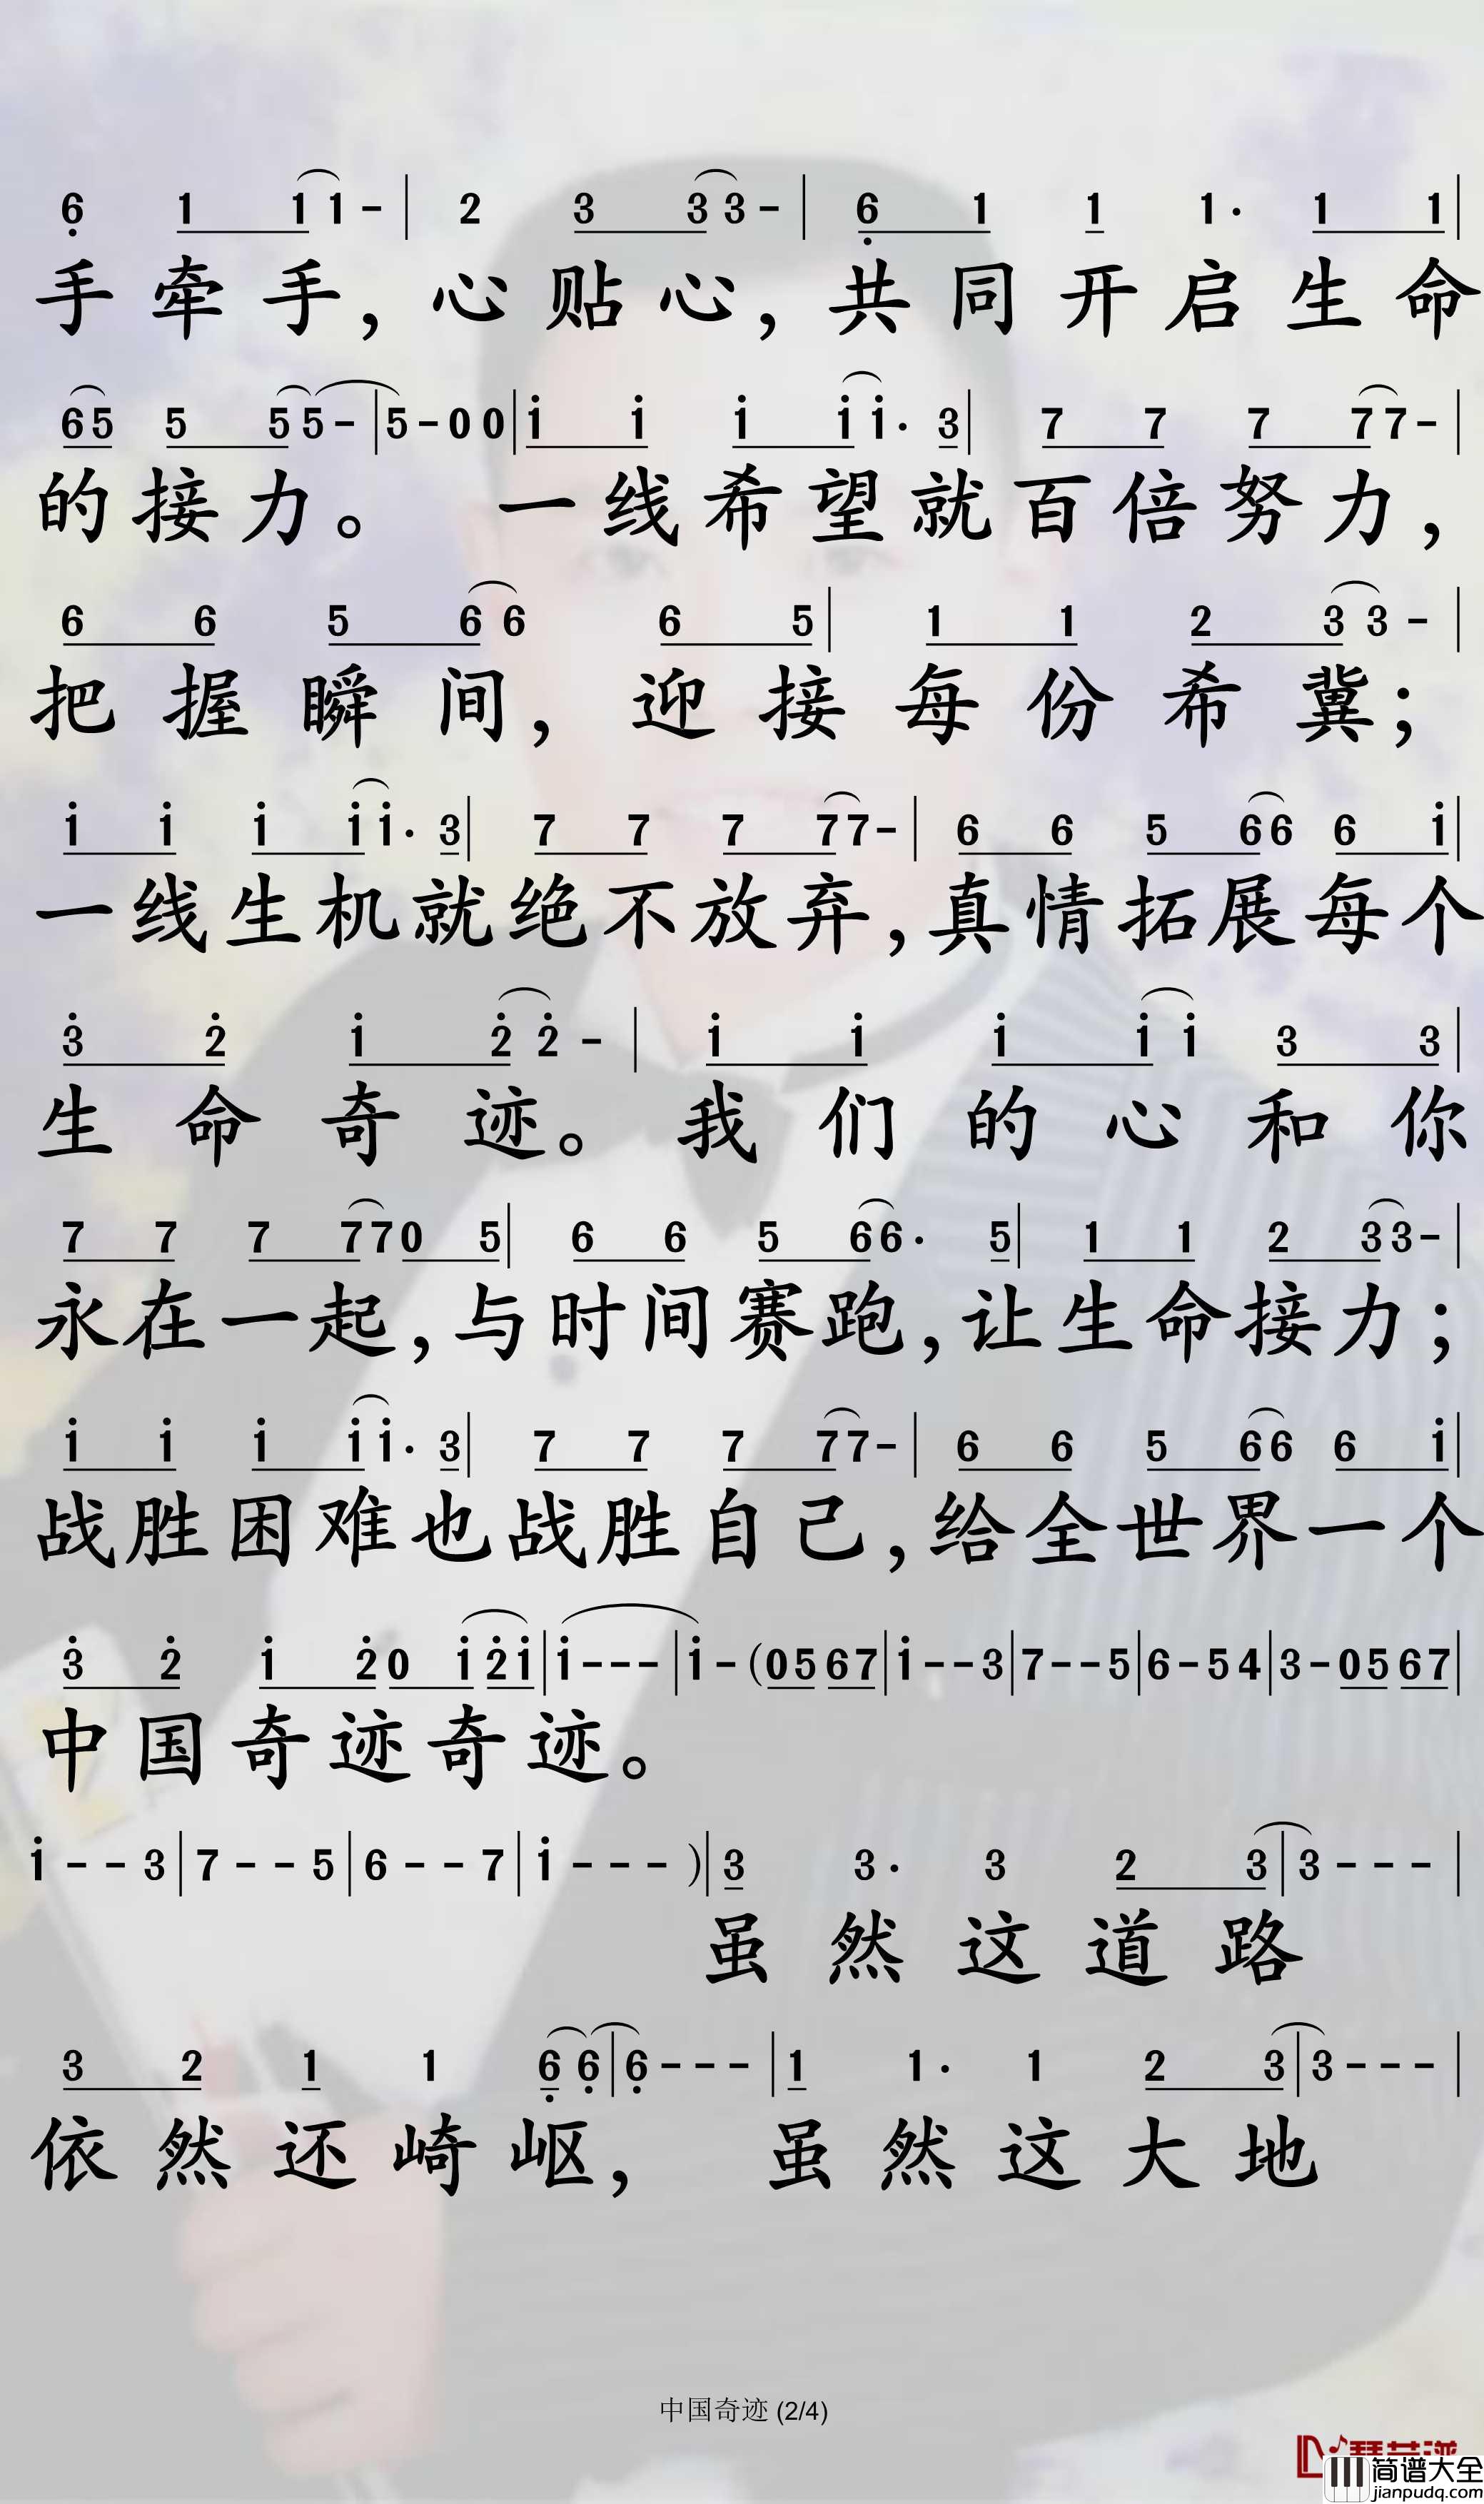 6̣ 1 1 1 - | 2 3 3 3 - | 6̣ 1 1 1· 1 1 |
手牵手，心贴心，共同开启生命
6 5 5 5 5 - | 5 - 0 0 | i i i i i· 3 | 7 7 7 7 7 - |
的接力。一线希望就百倍努力，
6 6 5 6 6 6 5 | 1 1 2 3 3 - |
把握瞬间，迎接每份希冀；
i i i i i· 3 | 7 7 7 7 7 - | 6 6 5 6 6 6 i |
一线生机就绝不放弃，真情拓展每个
3̇ 2̇ i 2̇ 2̇ - | i i i i i 3 3 |
生命奇迹。我们的心和你
7 7 7 7 7 0 5 | 6 6 5 6 6· 5 | 1 1 2 3 3 - |
永在一起，与时间赛跑，让生命接力；
i i i i i· 3 | 7 7 7 7 7 - | 6 6 5 6 6 6 i |
战胜困难也战胜自己，给全世界一个
3̇ 2̇ i 2̇ 0 i 2̇ i | i - - - | i - (0 5 6 7 | i - - 3 | 7 - - 5 | 6 - 5 4 | 3 - 0 5 6 7 |
中国奇迹奇迹。
i - - 3 | 7 - - 5 | 6 - - 7 | i - - - ) | 3 3· 3 2 3 | 3 - - - |
虽然这道路
3 2 1 1 6̣ 6̣ | 6̣ - - - | 1 1· 1 2 3 | 3 - - - |
依然还崎岖，虽然这大地
中国奇迹 (2/4)
简谱大全
jianpudq.com